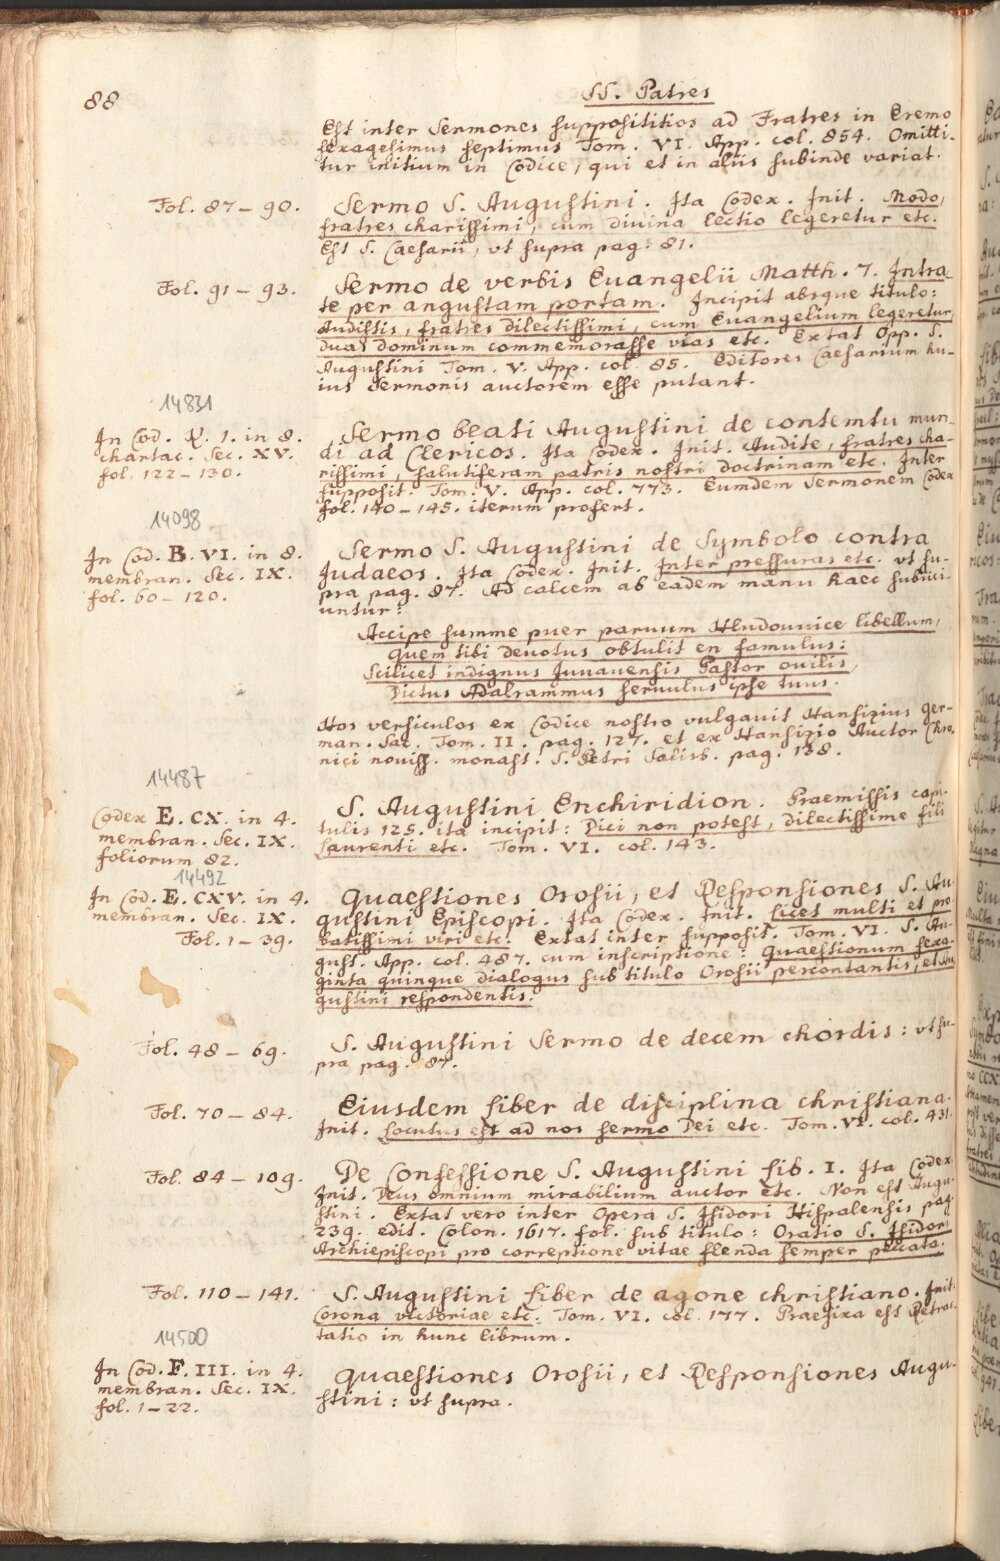 88
SS. Patres
Est inter Sermones supposititios ad Fratres in Eremo
sexagesimus septimus Tom. VI. App. col. 854. Omitti-
tur initium in Codice, qui et in aliis subinde variat.
Fol. 87-90.
Sermo S. Augustini. Ita Codex. Init. Modo,
fratres charissimi, cum divina lectio legeretur etc.
Est S. Caesarii, vt supra pag. 81.
Fol. 91-93.
Sermo de verbis Euangelii Matth. 7. Intra-
te per angustam portam. Incipit absque titulo:
Audistis, fratres dilectissimi, cum Euangelium legeretur,
duas dominum commemorasse vias etc. Extat Opp. S.
Augustini Tom. V. App. col. 85. Editores Caesarium hu-
ius Sermonis auctorem esse putant.
14831
In Cod. Q. 1. in 8.
chartac. Sec. XV.
fol. 122-130.
Sermo beati Augustini de contemtu mun-
di ad Clericos. Ita Codex. Init. Audite, fratres cha-
rissimi, salutiferam patris nostri doctrinam etc. Inter
supposit. Tom. V. App. col. 773. Eumdem Sermonem Codex
fol. 140-145. iterum profert.
14098
In Cod. B. VI. in 8.
membran. Sec. IX.
fol. 60-120.
Sermo S. Augustini de Symbolo contra
Judaeos. Ita Codex. Init. Inter pressuras etc. vt su-
pra pag. 87. Ad calcem ab eadem manu haec subiici-
untur:
Accipe summe puer paruum Hludouuice libellum,
Quem tibi deuotus obtulit en famulus:
Scilicet indignus Juuauensis Pastor ouilis,
Dictus Adalrammus seruulus ipse tuus.
Hos versiculos ex Codice nostro vulgauit Hansizius Ger-
man. Sac. Tom. II. pag. 127. et ex Hansizio Auctor Chro-
nici noviss. monast. S. Petri Salisb. pag. 138.
14487
Codex E. CX. in 4.
membran. Sec. IX.
foliorum 82.
S. Augustini Enchiridion. Praemissis capi-
tulis 125. ita incipit: Dici non potest, dilectissime fili
Laurenti etc. Tom. VI. col. 143.
14492
In Cod. E. CXV. in 4.
membran. Sec. IX.
Fol. 1-39.
Quaestiones Orosii, et Responsiones S. Au-
gustini Episcopi. Ita Codex. Init. Licet multi et pro-
batissimi viri etc. Extat inter supposit. Tom. VI. S. Au-
gust. App. col. 487. cum inscriptione: Quaestionum sexa-
ginta quinque dialogus sub titulo Orosii percontantis, et Au-
gustini respondentis.
Fol. 48-69.
S. Augustini Sermo de decem chordis: vt su-
pra pag. 87.
Fol. 70-84.
Eiusdem Liber de disciplina christiana.
Init. Locutus est ad nos sermo Dei etc. Tom. VI. col. 431.
Fol. 84-109.
De Confessione S. Augustini Lib. I. Ita Codex
Init. Deus omnium mirabilium auctor etc. Non est Augu-
stini. Extat vero inter Opera S. Isidori Hispalensis pag.
239. edit. Colon. 1617. fol. sub titulo: Oratio S. Isidori
Archiepiscopi pro correptione vitae flenda semper peccata.
Fol. 110-141.
S. Augustini Liber de agone christiano. Init.
Corona victoriae etc. Tom. VI. col. 177. Praefixa est Retrac-
tatio in hunc librum.
14500
In Cod. F. III. in 4.
membran. Sec. IX.
fol. 1-22.
Quaestiones Orosii, et Responsiones Augu-
stini: vt supra.